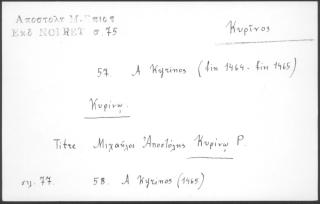 Αποστολη Μ. Επιστ
Εκδ NOIRET σ. 75
Κυρῖνος
57. A Kyrinos (fin 1464 - fin 1465)
Κυρίνῳ.
Titre Μιχαῆλος Ἀποστόλης Κυρίνῳ P.
σελ. 77. 58. A Kyrinos (1465)